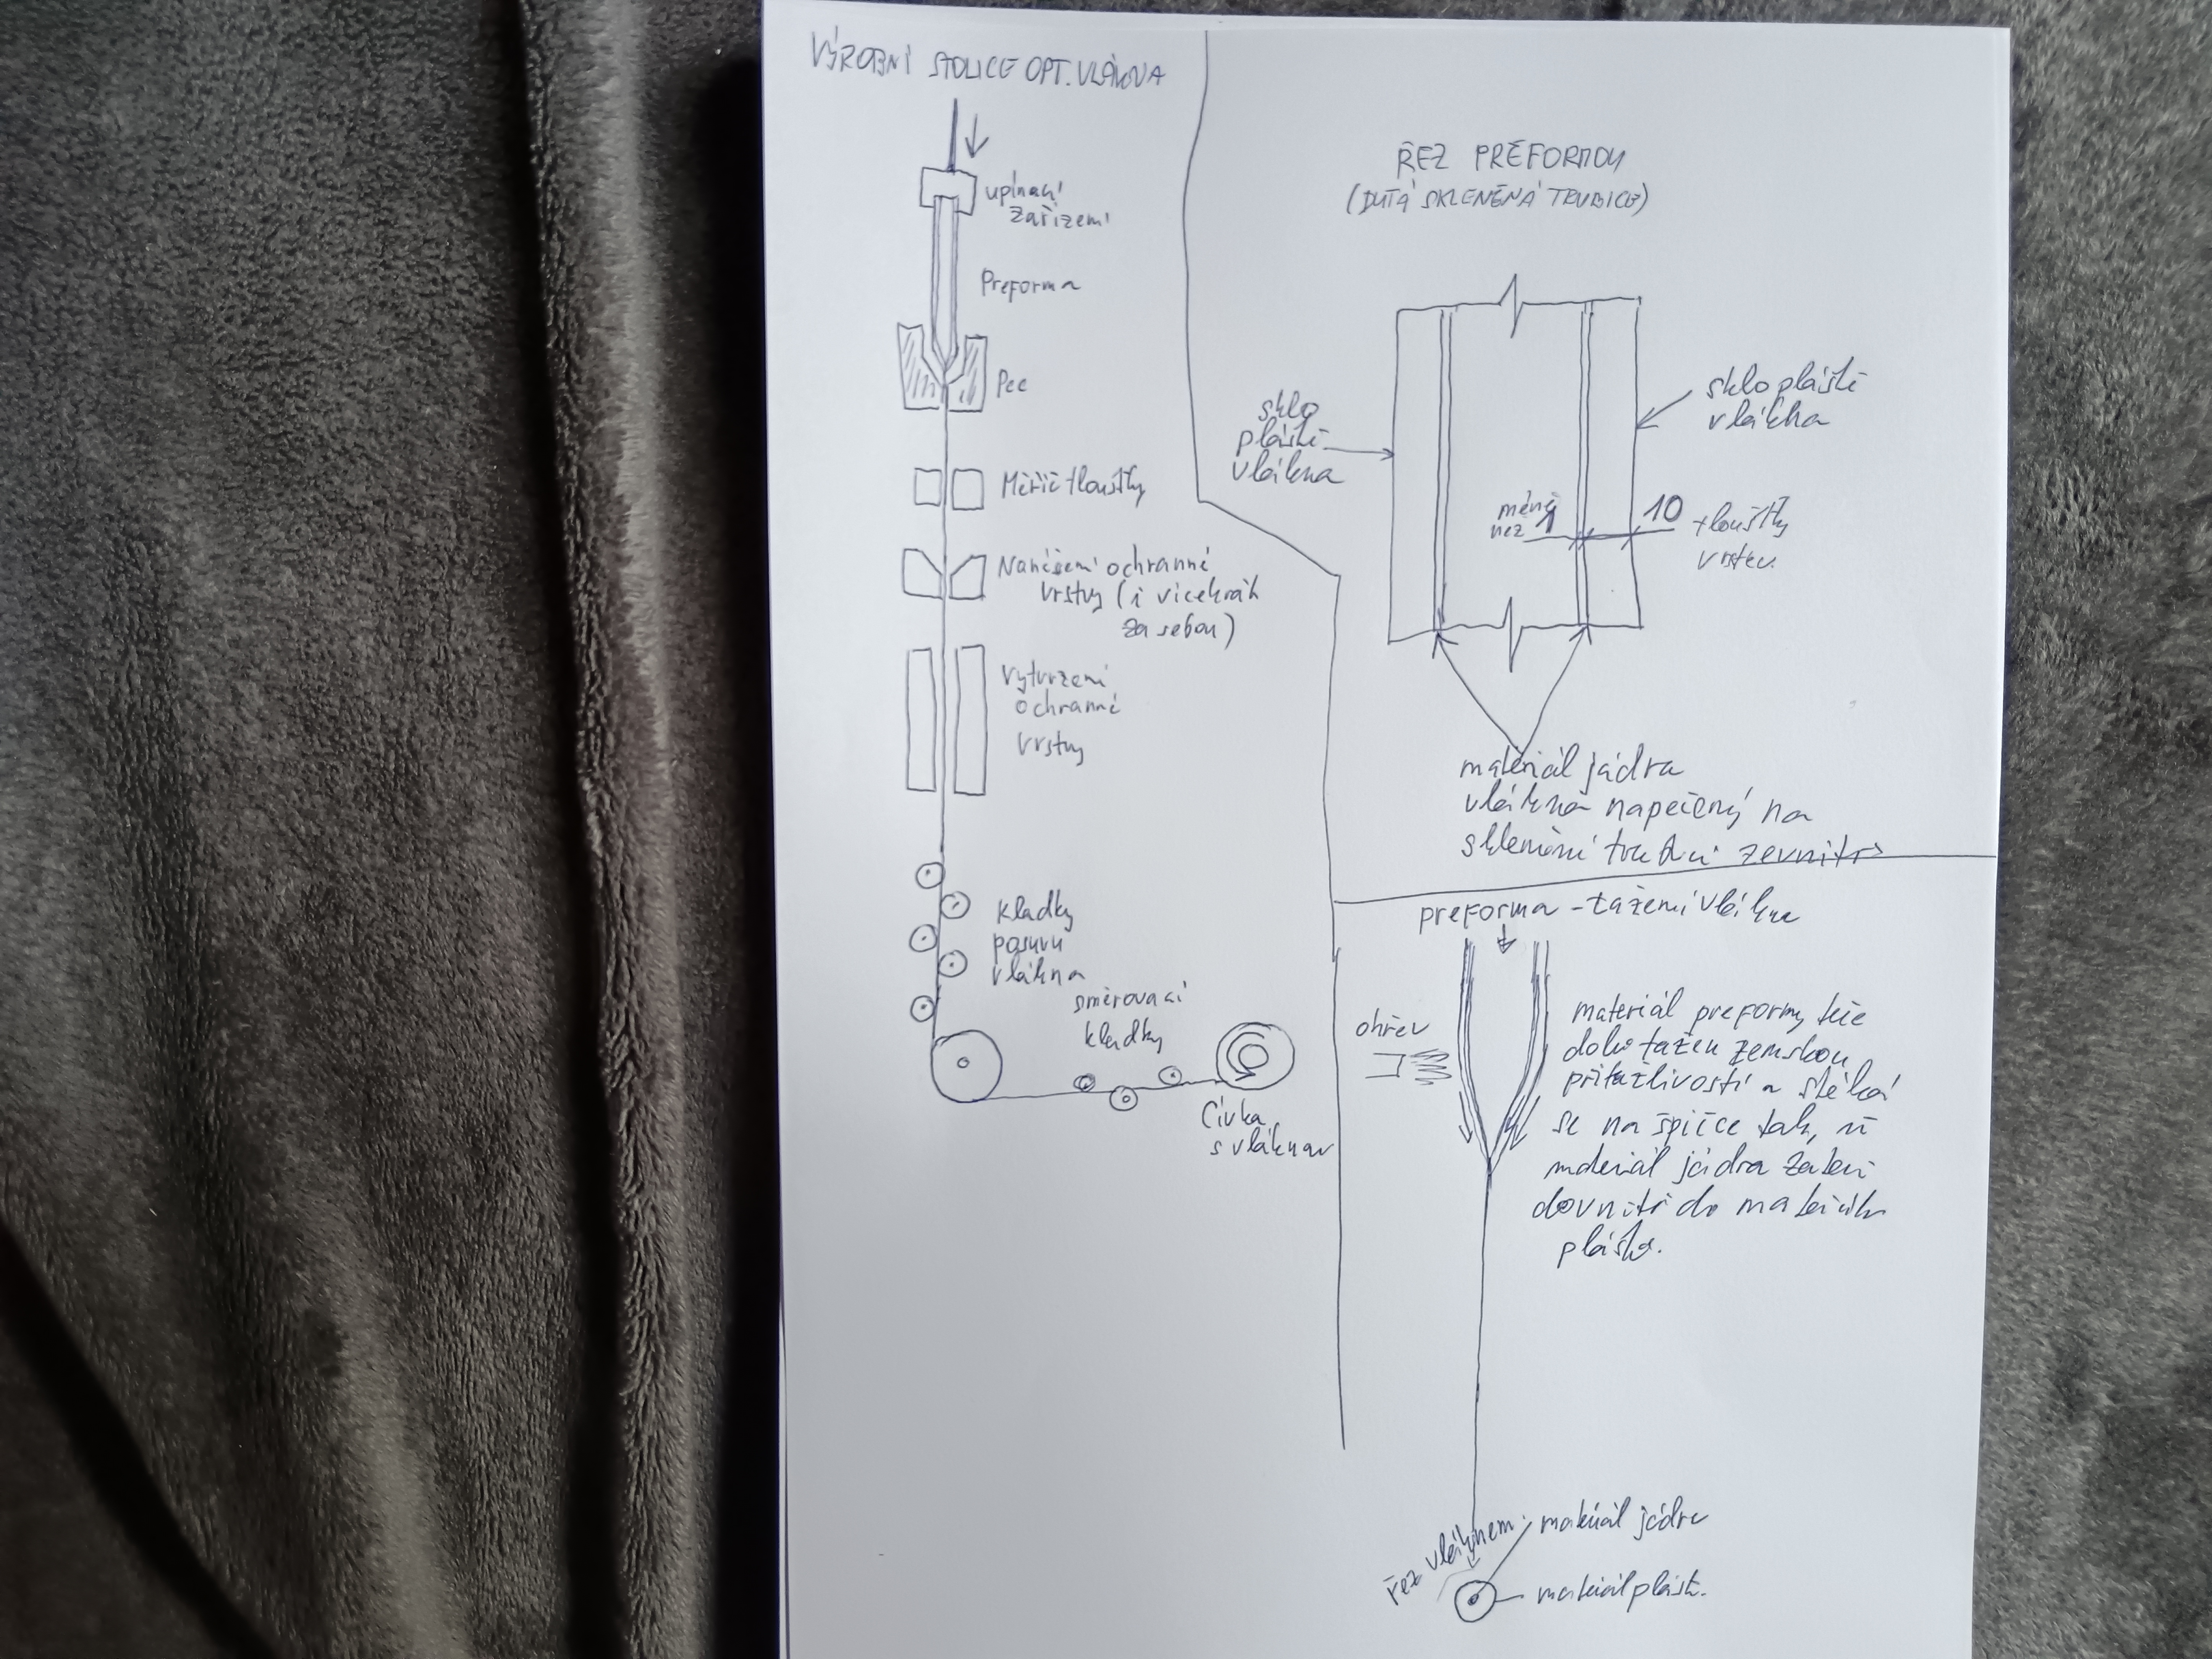 VÝROBNÍ STOLICE OPT. VLÁKNA
upínací
zařízení
Preforma
Pec
Měřič tloušťky
Nanášení ochranné
vrstvy (i vícekrát
za sebou)
vytvrzení
ochranné
vrstvy
kladky
posuvu
vlákna
směrovací
kladky
Cívka
s vláknem
ŘEZ PREFORMOU
(DUTÁ SKLENĚNÁ TRUBICE)
sklo
pláště
vlákna
sklo pláště
vlákna
méně
než 1
10
tloušťky
vrstev.
materiál jádra
vlákna napečený na
skleněné trubici zevnitř
preforma - tažení vlákna
ohřev
materiál preformy teče
dolů tažen zemskou
přitažlivostí a stéká
se na špičce tak, že
materiál jádra zateče
dovnitř do materiálu
pláště.
řez vláknem
materiál jádra
materiál pláště.